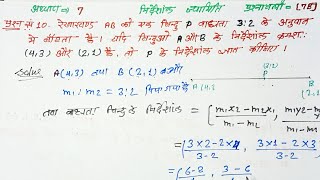 अध्याय = 7 निर्देशांक ज्यामिति प्रश्नावली = [7B]
प्रश्न सं 10. रेखाखण्ड AB को एक बिन्दु P बाह्यतः 3:2 के अनुपात
में बाँटता है। यदि बिन्दुओं A और B के निर्देशांक क्रमशः
(4,3) और (2,1) हैं, तो P के निर्देशांक ज्ञात कीजिए।
Solve A(4,3) तथा B(2,1)
m₁:m₂ = 3:2
(3:2)
P
B
(2,1)
बाह्यतः बिन्दु के निर्देशांक = (m₁x2 - m₂x₁ / m₁-m₂, m₁y2-
= (3×2-2×4 / 3-2, 3×1-2×3 / 3-2)
= (6-8 3-6